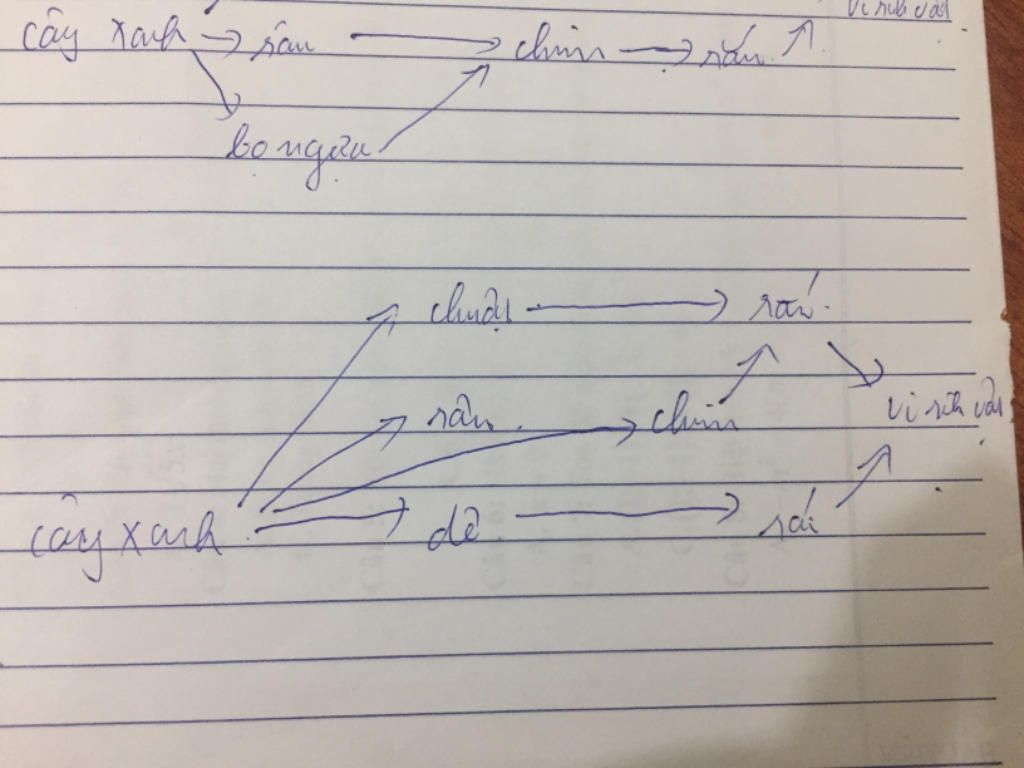 vi sinh vật
cây xanh → sâu → chim → rắn
bọ ngựa
chuột → rắn
vi sinh vật
sâu chim
cây xanh → dê →